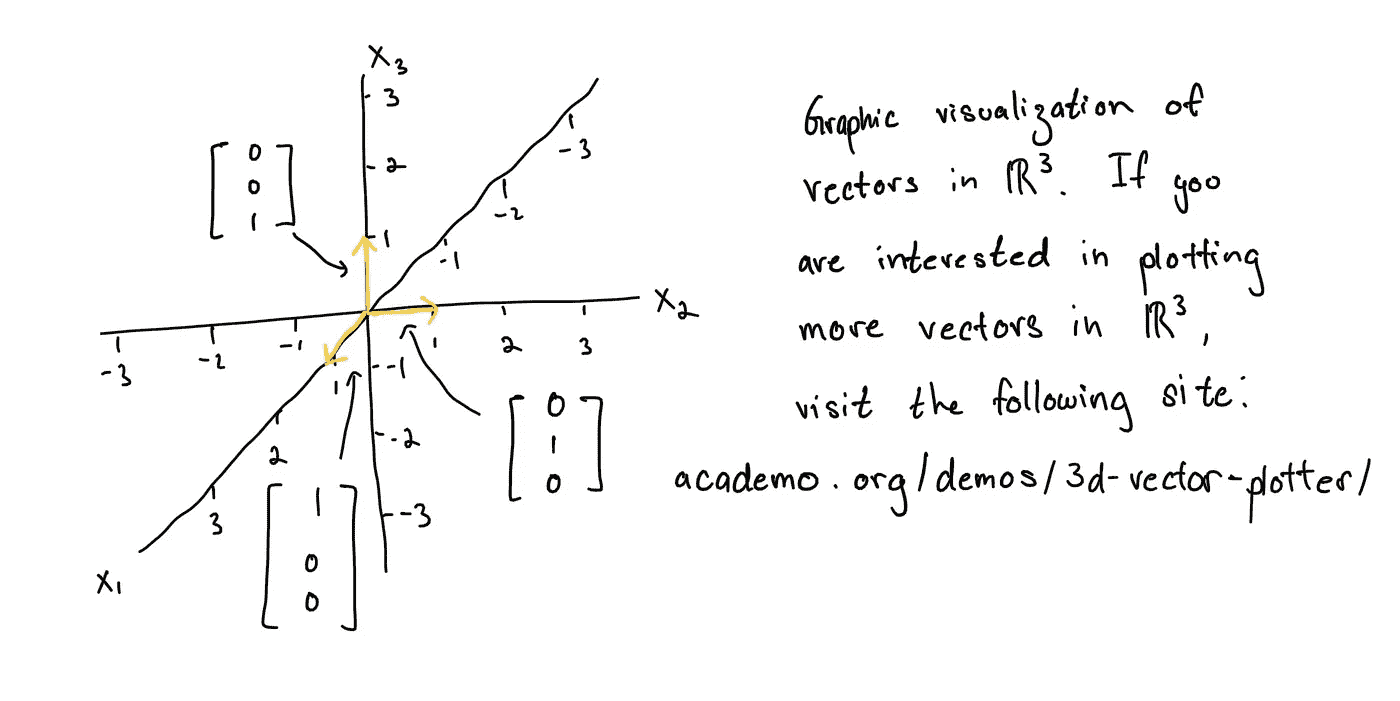 X₃
3
2
1
-1
-2
-3
[ 0
0
1 ]
-3
-2
-1
X₂
-3
-2
-1
1
2
3
1
2
3
X₁
[ 0
1
0 ]
[ 1
0
0 ]
Graphic visualization of
vectors in ℝ³. If you
are interested in plotting
more vectors in ℝ³,
visit the following site:
academo.org/demos/3d-vector-plotter/